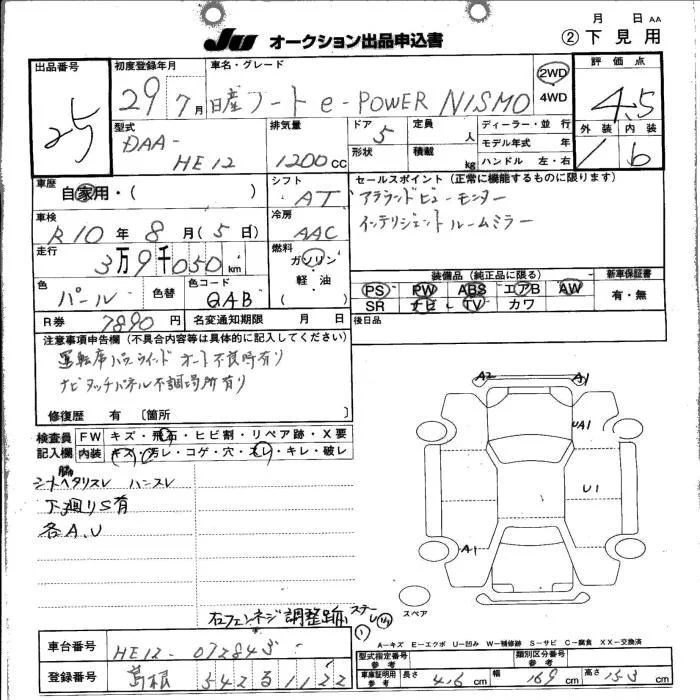 JU オークション出品申込書
月 日 AA
② 下見用
出品番号 25
初度登録年月 29年 7月
車名・グレード 日産 ノート e-POWER NISMO
2WD
4WD
評価点 4.5
外装 内装
1 b
型式 DAA-HE12
排気量 1200cc
ドア 5
形状
定員 人
積載 kg
ディーラー・並行
モデル年式 年
ハンドル 左・右
車歴 自家用・( )
シフト AT
セールスポイント (正常に機能するものに限ります)
アラウンドビューモニター
インテリジェント ルームミラー
車検 R10年 8月 (5日)
冷房 AAC
走行 3万9千050km
燃料 ガソリン
軽・油
( )
装備品 (純正品に限る)
新車保証書
PS PW ABS エアB AW
SR ナビ TV カワ
有・無
色 パール
色替
色コード QAB
R券 7890円
名変通知期限 月 日
後日品
注意事項申告欄 (不具合内容等は具体的に記入してください)
運転席パワーウインド オート不良時有り
ナビタッチパネル不調場所有り
修復歴 有 〔箇所
検査員記入欄
FW キズ・飛石・ヒビ割・リペア跡・X要
内装 キズ・汚レ・コゲ・穴・スレ・キレ・破レ
シートヘタリスレ ハンスレ
下廻りS有
各A、U
A2 A1
UA1
U1
A1
スペア
右フェンネジ調整跡
A-キズ E-エクボ U-凹み W-補修跡 S-サビ C-腐食 XX-交換済
車台番号 HE12-072845
登録番号 島根 542 る 1122
型式指定番号 参考
類別区分番号 参考
車庫証明用 参考
長さ 416cm
幅 169cm
高さ 153cm